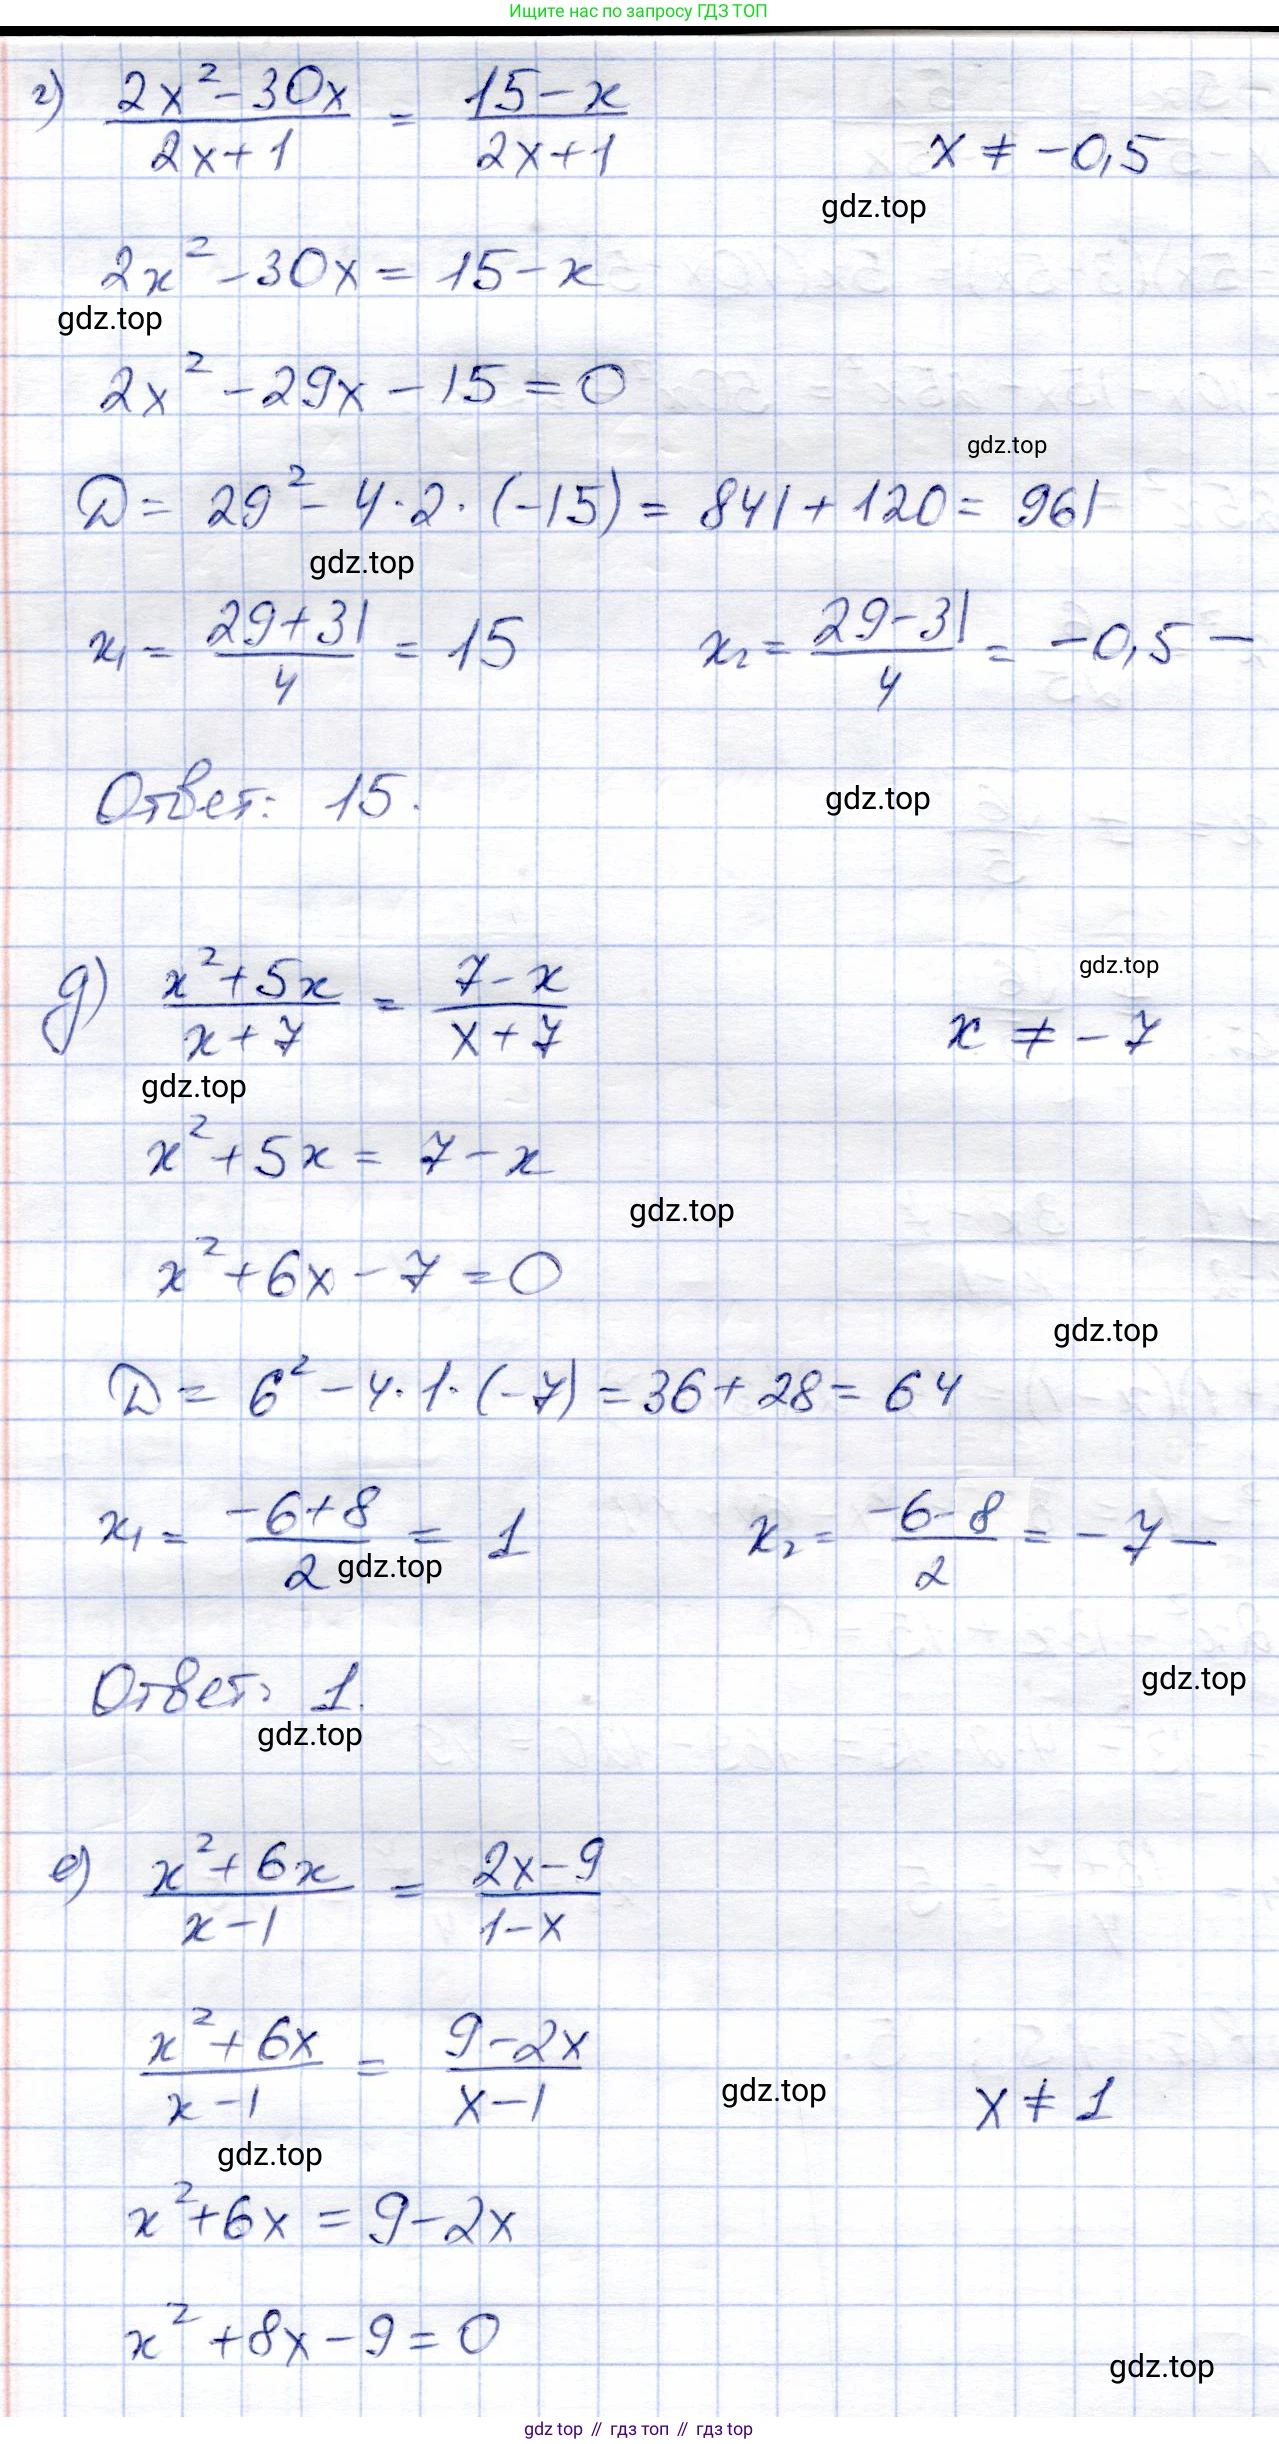 Ищите нас по запросу ГДЗ ТОП
г) (2x² - 30x)/(2x + 1) = (15 - x)/(2x + 1)    x ≠ -0,5
gdz.top
2x² - 30x = 15 - x
gdz.top
2x² - 29x - 15 = 0
gdz.top
D = 29² - 4 · 2 · (-15) = 841 + 120 = 961
gdz.top
x₁ = (29 + 31)/4 = 15    x₂ = (29 - 31)/4 = -0,5 —
Ответ: 15.
gdz.top
д) (x² + 5x)/(x + 7) = (7 - x)/(x + 7)    x ≠ -7
gdz.top
gdz.top
x² + 5x = 7 - x
gdz.top
x² + 6x - 7 = 0
gdz.top
D = 6² - 4 · 1 · (-7) = 36 + 28 = 64
x₁ = (-6 + 8)/2 = 1    x₂ = (-6 - 8)/2 = -7 —
gdz.top
Ответ: 1.
gdz.top
gdz.top
е) (x² + 6x)/(x - 1) = (2x - 9)/(1 - x)
(x² + 6x)/(x - 1) = (9 - 2x)/(x - 1)    x ≠ 1
gdz.top
gdz.top
x² + 6x = 9 - 2x
x² + 8x - 9 = 0
gdz.top
gdz top // гдз топ // гдз top